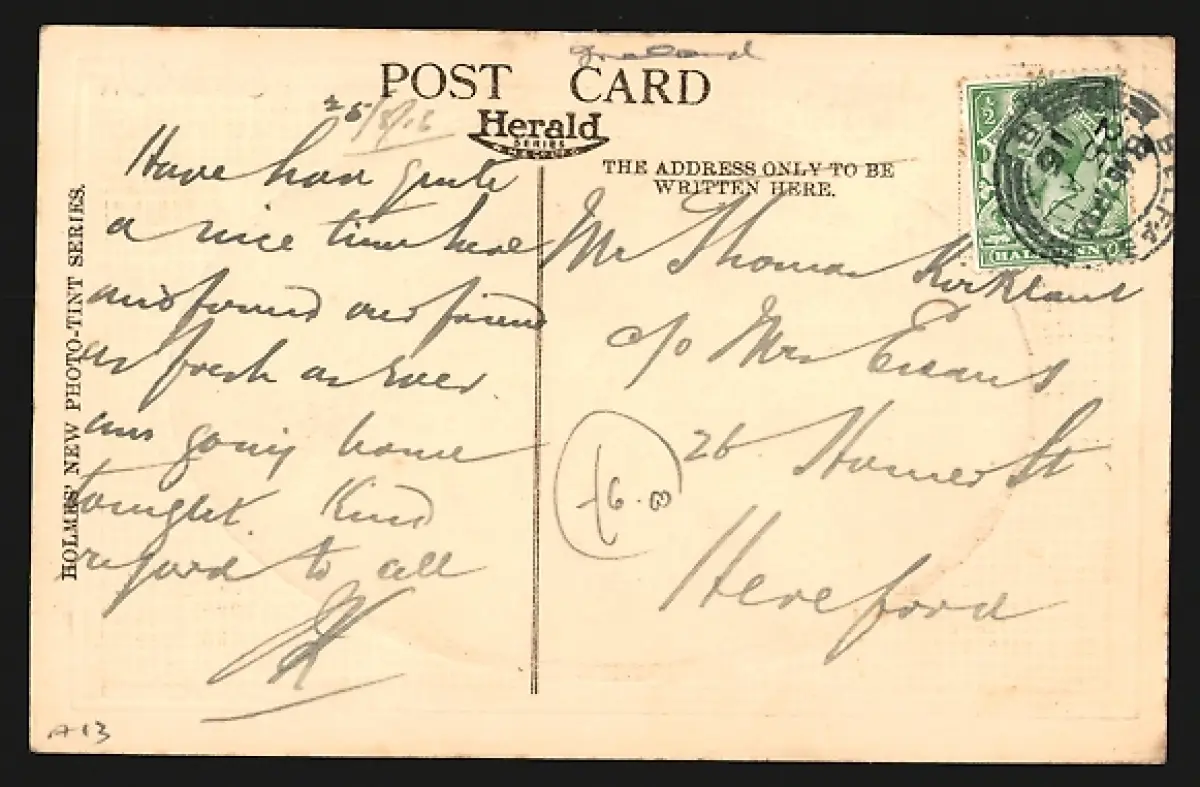 Ireland
POST CARD
Herald
SERIES
25/8/16
THE ADDRESS ONLY TO BE
WRITTEN HERE.
HOLMES' NEW PHOTO-TINT SERIES.
Have had quite
a nice time here
and found our friend
as fresh as ever.
am going home
tonight. Kind
regard to all
JK
Mr Thomas Kirkland
c/o Mrs Evans
26 Homer St
Hereford
½
HALFPENNY
BELFA
16
A13